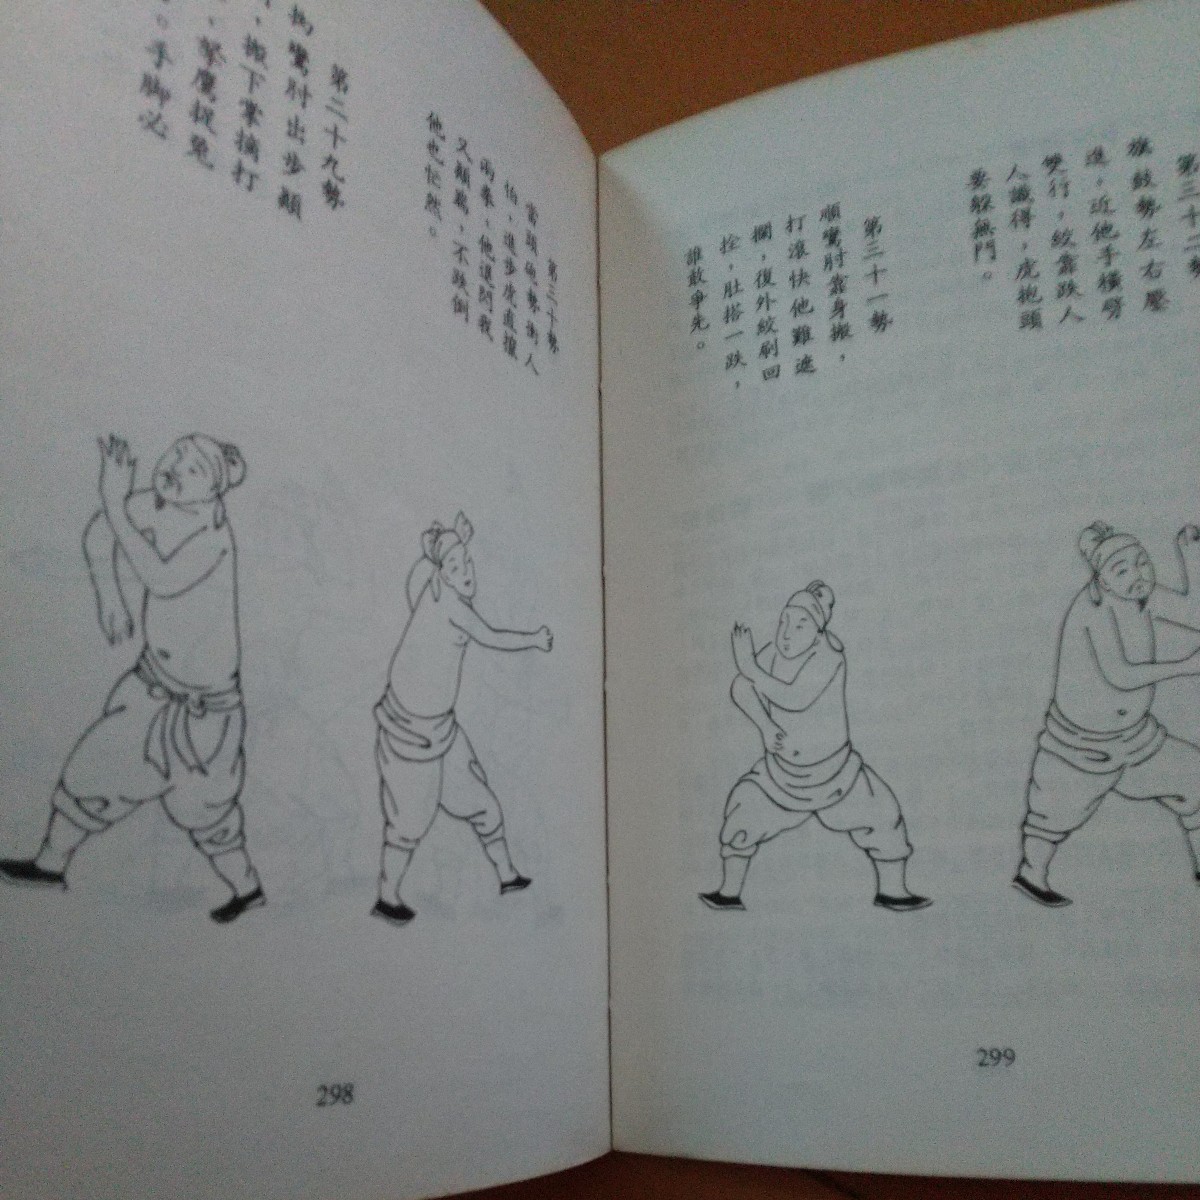 第二十九勢
拗鸞肘出步顛
搬下掌摘打
拏鷹捉兔
手脚必
第三十勢
當頭砲勢衝人
怕，進步虎直攛
兩拳，他退閃我
又顛踹，不跌倒
他也忙然。
298
第三十二勢
旗鼓勢左右壓
進，近他手橫劈
雙行，絞靠跌人
人識得，虎抱頭
要躲無門。
第三十一勢
順鸞肘靠身搬，
打滾快他難遮
攔，復外絞刷回
拴，肚搭一跌，
誰敢爭先。
299